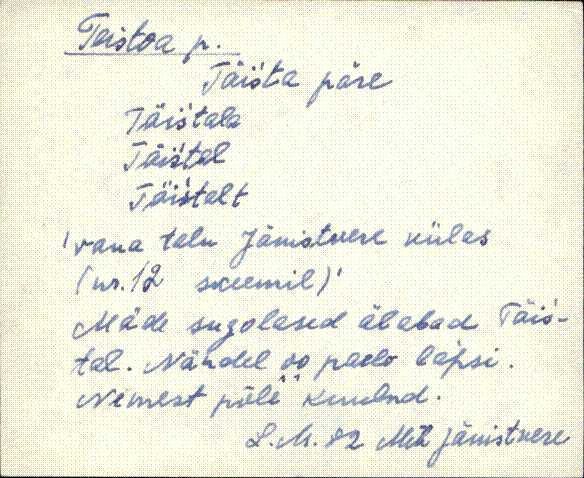 Teistoa p.
Täis'ta päre
Täis'tala
Täis'tal
Täis'talt
'vana talu Jänistvere külas
(nr. 12 skeemil)'
Mäde sugolased älabad Täis'-
tal. Nändel oo pallo lapsi.
Nemest põle kuulnd.
L. M. 82 Mih Jänistvere